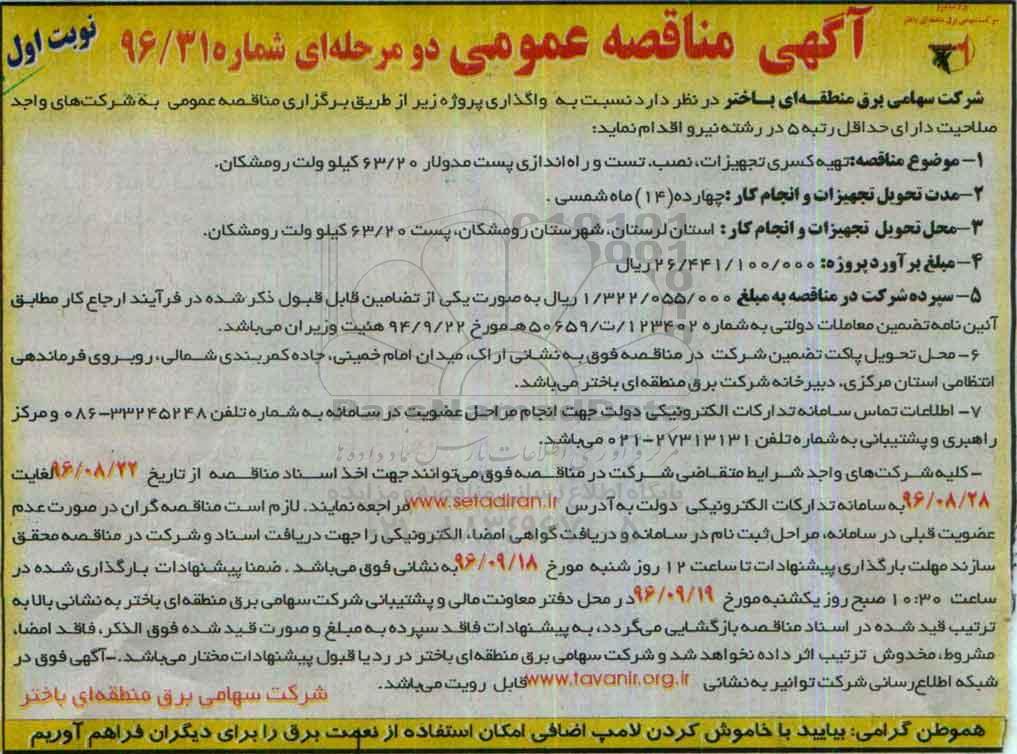 نوبت اول
آگهی مناقصه عمومی دو مرحله‌ای شماره ۹۶/۳۱
شرکت سهامی برق منطقه‌ای باختر در نظر دارد نسبت به واگذاری پروژه زیر از طریق برگزاری مناقصه عمومی به شرکت‌های واجد
صلاحیت دارای حداقل رتبه ۵ در رشته نیرو اقدام نماید:
۱- موضوع مناقصه: تهیه کسری تجهیزات، نصب، تست و راه‌اندازی پست مدولار ۶۳/۲۰ کیلو ولت رومشکان.
۲- مدت تحویل تجهیزات و انجام کار: چهارده (۱۴) ماه شمسی.
۳- محل تحویل تجهیزات و انجام کار: استان لرستان، شهرستان رومشکان، پست ۶۳/۲۰ کیلو ولت رومشکان.
۴- مبلغ برآورد پروژه: ۲۶/۴۴۱/۱۰۰/۰۰۰ ریال
۵- سپرده شرکت در مناقصه به مبلغ ۱/۳۲۲/۰۵۵/۰۰۰ ریال به صورت یکی از تضامین قابل قبول ذکر شده در فرآیند ارجاع کار مطابق
آئین نامه تضمین معاملات دولتی به شماره ۱۲۳۴۰۲/ت/۵۰۶۵۹هـ مورخ ۹۴/۹/۲۲ هئیت وزیران می‌باشد.
۶- محل تحویل پاکت تضمین شرکت در مناقصه فوق به نشانی اراک، میدان امام خمینی، جاده کمربندی شمالی، روبروی فرماندهی
انتظامی استان مرکزی، دبیرخانه شرکت برق منطقه‌ای باختر می‌باشد.
۷- اطلاعات تماس سامانه تدارکات الکترونیکی دولت جهت انجام مراحل عضویت در سامانه به شماره تلفن ۳۳۲۴۵۲۴۸-۰۸۶ و مرکز
راهبری و پشتیبانی به شماره تلفن ۲۷۳۱۳۱۳۱-۰۲۱ می‌باشد.
- کلیه شرکت‌های واجد شرایط متقاضی شرکت در مناقصه فوق می‌توانند جهت اخذ اسناد مناقصه از تاریخ ۹۶/۰۸/۲۲ لغایت
۹۶/۰۸/۲۸ به سامانه تدارکات الکترونیکی دولت به آدرس www.setadiran.ir مراجعه نمایند. لازم است مناقصه گران در صورت عدم
عضویت قبلی در سامانه، مراحل ثبت نام در سامانه و دریافت گواهی امضاء الکترونیکی را جهت دریافت اسناد و شرکت در مناقصه محقق
سازند مهلت بارگذاری پیشنهادات تا ساعت ۱۲ روز شنبه مورخ ۹۶/۰۹/۱۸ به نشانی فوق می‌باشد. ضمنا پیشنهادات بارگذاری شده در
ساعت ۱۰:۳۰ صبح روز یکشنبه مورخ ۹۶/۰۹/۱۹ در محل دفتر معاونت مالی و پشتیبانی شرکت سهامی برق منطقه‌ای باختر به نشانی بالا به
ترتیب قید شده در اسناد مناقصه بازگشایی می‌گردد، به پیشنهادات فاقد سپرده به مبلغ و صورت قید شده فوق الذکر، فاقد امضاء،
مشروط، مخدوش ترتیب اثر داده نخواهد شد و شرکت سهامی برق منطقه‌ای باختر در رد یا قبول پیشنهادات مختار می‌باشد.-آگهی فوق در
شبکه اطلاع‌رسانی شرکت توانیر به نشانی www.tavanir.org.ir قابل رویت می‌باشد.
شرکت سهامی برق منطقه‌ای باختر
هموطن گرامی: بیایید با خاموش کردن لامپ اضافی امکان استفاده از نعمت برق را برای دیگران فراهم آوریم